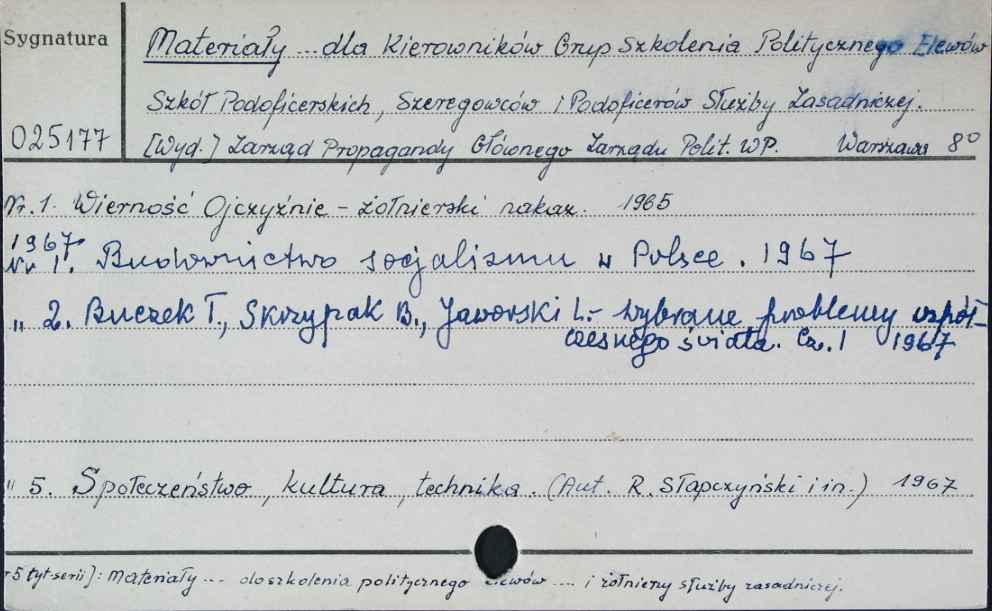 Sygnatura
Materiały ... dla Kierowników Grup Szkolenia Politycznego Elewów
Szkół Podoficerskich, Szeregowców i Podoficerów Służby Zasadniczej.
025177
[Wyd.] Zarząd Propagandy Głównego Zarządu Polit. WP. Warszawa 8°
Nr. 1. Wierność Ojczyźnie - żołnierski nakaz. 1965
1967
Nr 1. Budownictwo socjalizmu w Polsce. 1967
" 2. Buczek T., Skrzypak B., Jaworski L.- Wybrane problemy współ-
czesnego świata. Cz. 1 1967
" 5. Społeczeństwo, kultura, technika. (Aut. R. Słapczyński i in.) 1967
5 tyt. serii]: Materiały ... do szkolenia politycznego elewów .... i żołnierzy służby zasadniczej.